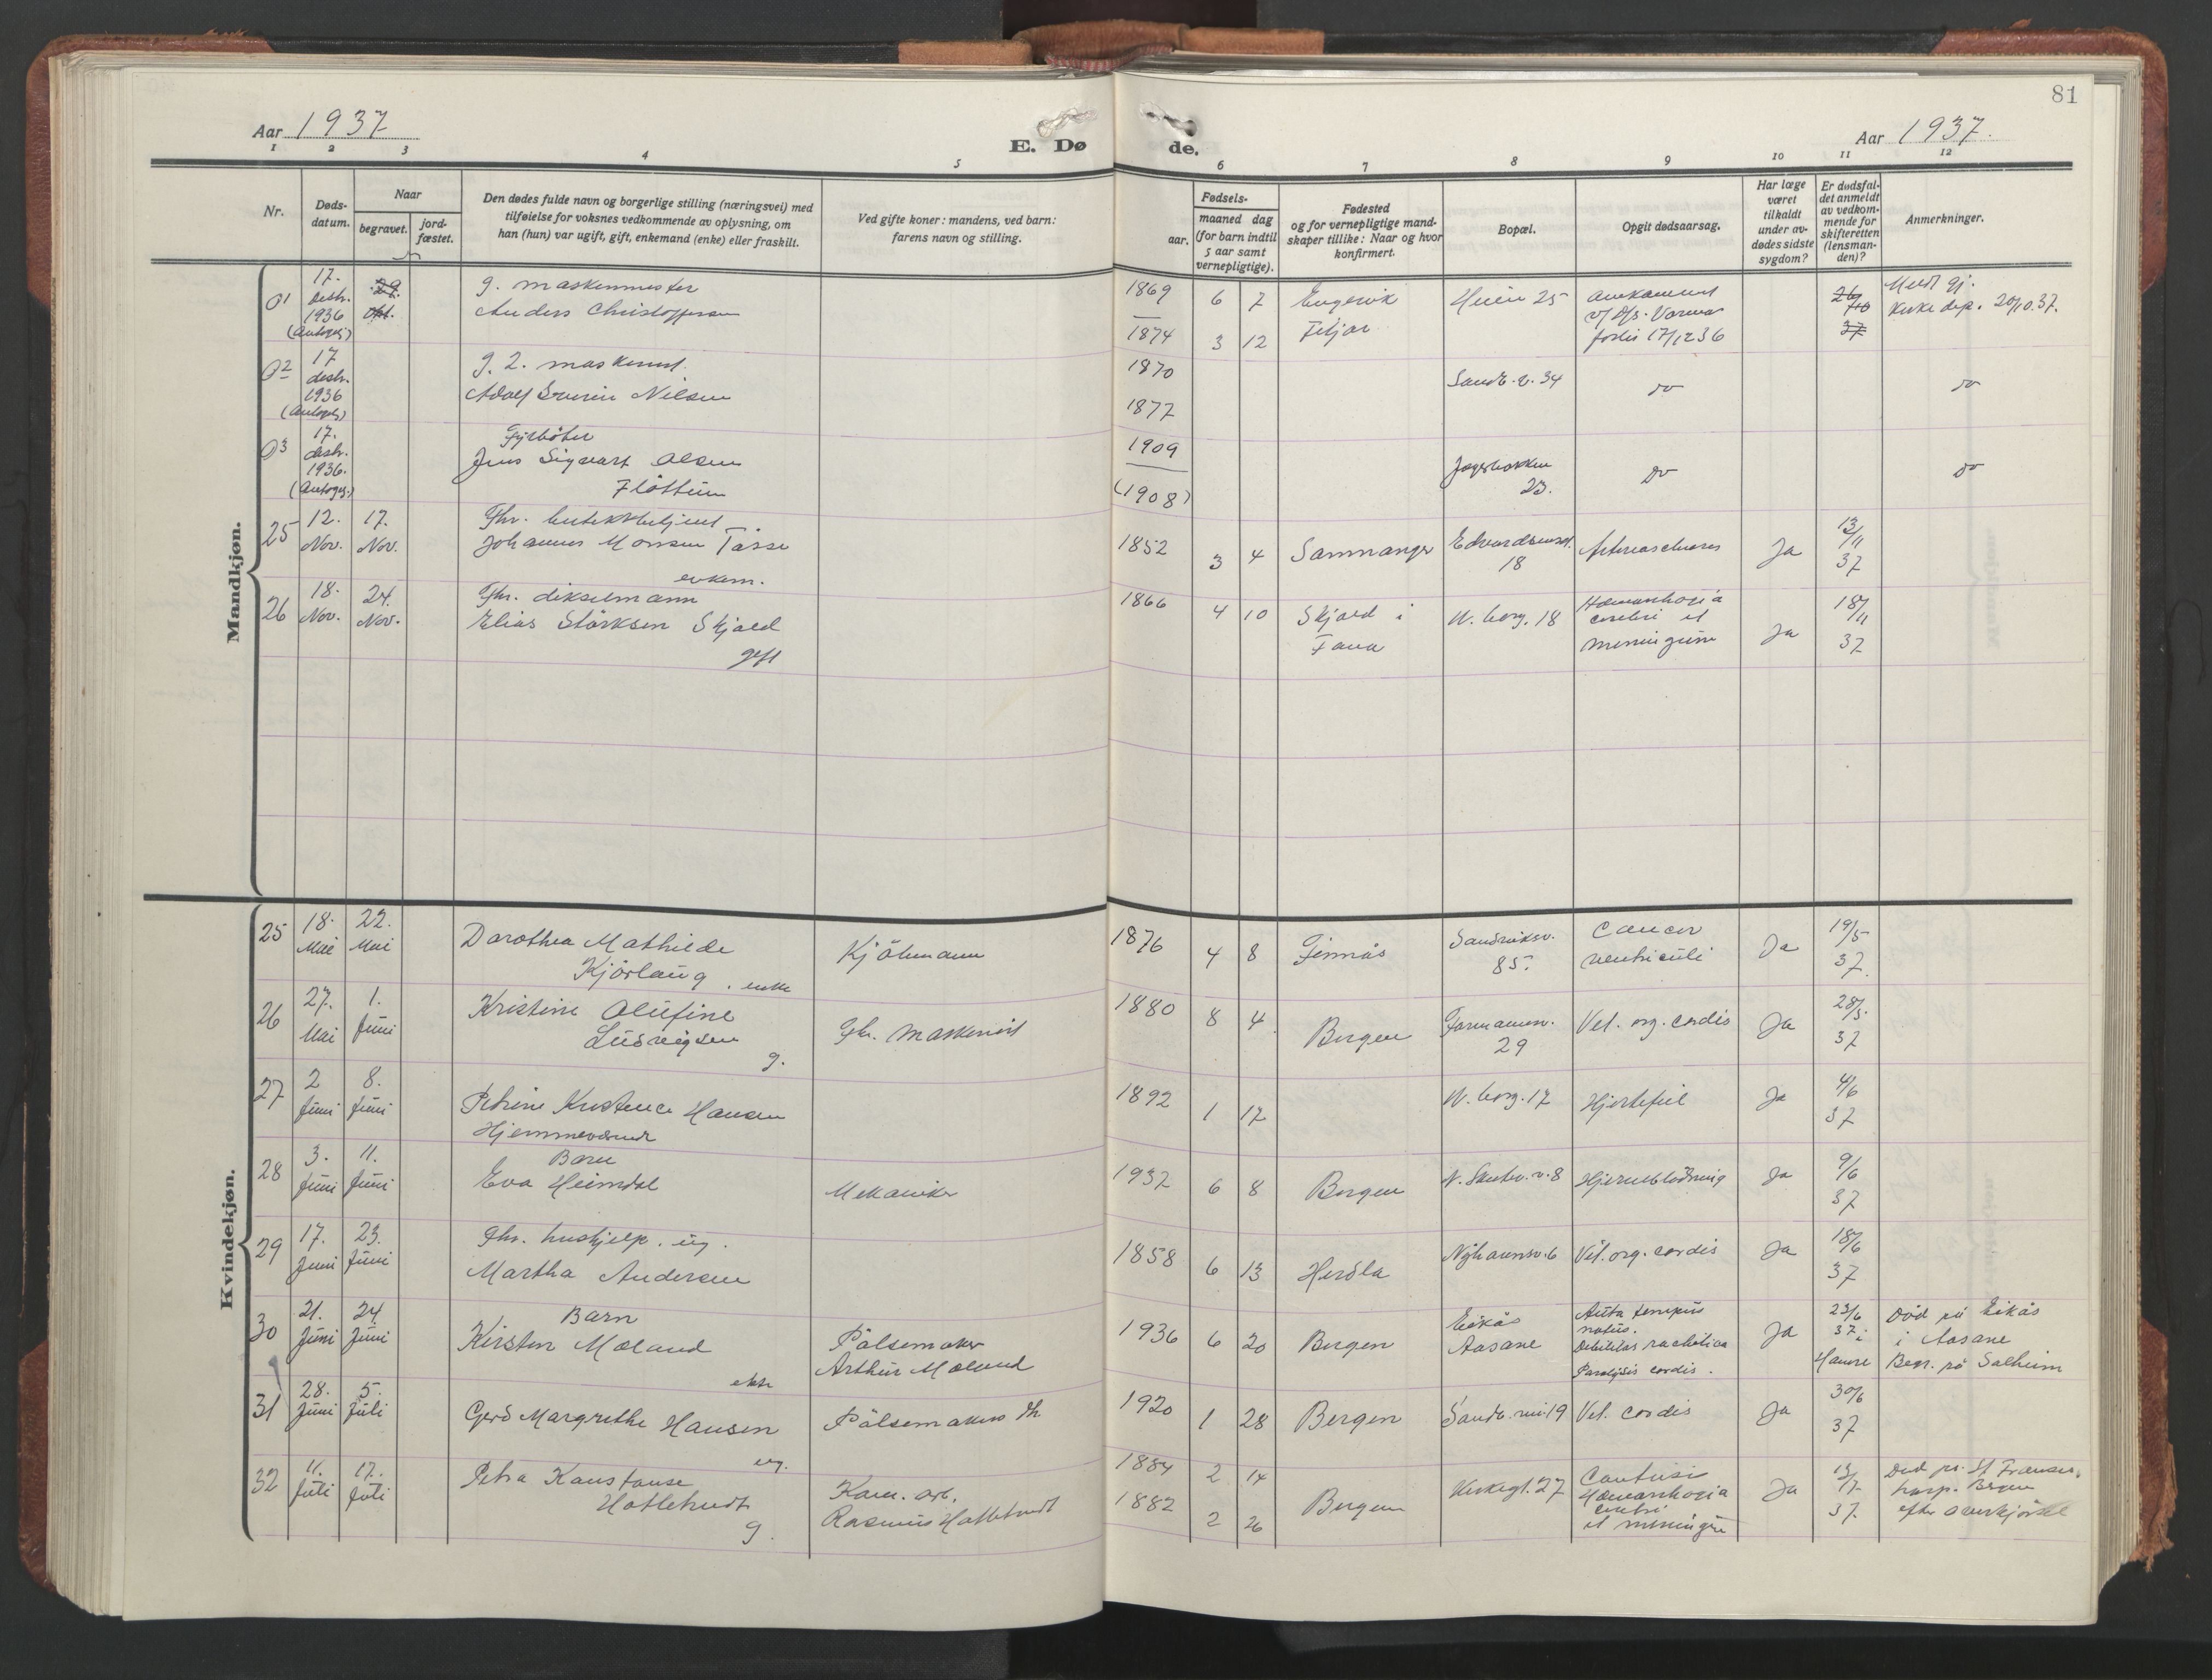 81
Aar 1937
E. Dø
de.
Aar 1937.
1 2 3 4 5 6 7 8 9 10 11 12
Nr.
Døds-
datum.
Naar
begravet.
jord-
fæstet.
Den dødes fulde navn og borgerlige stilling (næringsvei) med
tilføielse for voksnes vedkommende av oplysning, om
han (hun) var ugift, gift, enkemand (enke) eller fraskilt.
Ved gifte koner: mandens, ved barn:
farens navn og stilling.
Fødsels-
aar.
maaned dag
(for barn indtil
5 aar samt
vernepligtige).
Fødested
og for vernepligtige mand-
skaper tillike: Naar og hvor
konfirmert.
Bopæl.
Opgit dødsaarsag.
Har læge
været
tilkaldt
under av-
dødes sidste
sygdom?
Er dødsfal-
det anmeldt
av vedkom-
mende for
skifteretten
(lensman-
den)?
Anmerkninger.
Mandkjøn.
01
17.
Desbr.
1936
29.
Okt.
g. maskinmester
Anders Christoffersen
1869
6 7
1874
3 12
Engesvik
Fitjar
omkommet
v/ D/S. Varma
forlis 17/12 36
26/10
37
Medd gj.
Kirke dep. 20/10.37.
02
17
desbr.
1936
g. 2. maskinist
Adolf Severin Nilsen
1870
1877
Sandv. v. 34
do
do
03
17.
desbr.
1936.
Fyrböter
Jens Sigvart Olsen
Flöttum
1909
(1908)
23.
do
do
25
12.
Nov.
17.
Nov.
Johannes Monsen Tösse
enkem.
1852
3 4
Samnanger
18
Ja
13/11
37
26
18.
Nov.
24.
Nov.
Fhv. dikselmann
Elias Störksen Skjold
gift
1866
4 10
Skjold i
Fana
N. borg. 18
Hæmorrhagia
cerebri et
meningium
Ja
18/11
37
Kvindekjøn.
25
18.
Mai
22.
Mai
Dorothea Mathilde
Kjörlaug, enke
Kjöbmann
1876
4 8
Finnås
Sandviksv.
85.
Cancer
ventriculi
Ja
19/5
37.
26
27.
Mai
1.
Juni
Kristine Olufine
Ludvigsen
g.
Fh. maskinist
1880
8 4
Bergen
Formannsv.
29
Vit. org. cordis
Ja
28/5.
37
27
2
Juni
8.
Juni
Petrine Kristence Hansen
Hjemmeværende
1892
1 17
N. borg. 17
Hjertefeil
Ja
4/6
37
28
3.
Juni
11.
Juni
Barn
Eva Heimdal
Mekaniker
1932
6 8
Bergen
N. Skutev. v. 8
Hjerneblödning
Ja
9/6
37
29
17.
Juni
23.
Juni
Fhv. hushjelp. ug.
Martha Andersen
1858
6 13
Herdla
Nyhavnsv. 6
Vit. org. cordis
Ja
18/6
37
30
21.
Juni
24.
Juni
Barn
Kirsten Moland
ekte
Pölsemaker
Arthur Moland
1936
6 20
Bergen
Eikås
Aasane
Anta tempus
natus.
Debilitas rachitica
Paralysis cordis.
Ja
23/6
37 i
Hamre
Död på Eikås
i Aasane
Begr. på Solheim
31
28.
Juni
5.
Juli
Gerd Margrethe Hansen
ug.
Pölsemakers dtr
1920
1 28
Bergen
Sandv. vei 19
Vit. cordis
Ja
30/6
37
32
11.
Juli
17.
Juli
Petra Konstanse
Hattletvedt
g.
Kom. arb.
Rasmus Hattletvedt
1884
2 14
1882
2 26
Bergen
Kirkegt. 27
Contusio
Hæmorrhagia
cerebri
et meningium
Ja
13/7
37.
Död på St Fransis.
hosp. Bergen
efter overkjörsel